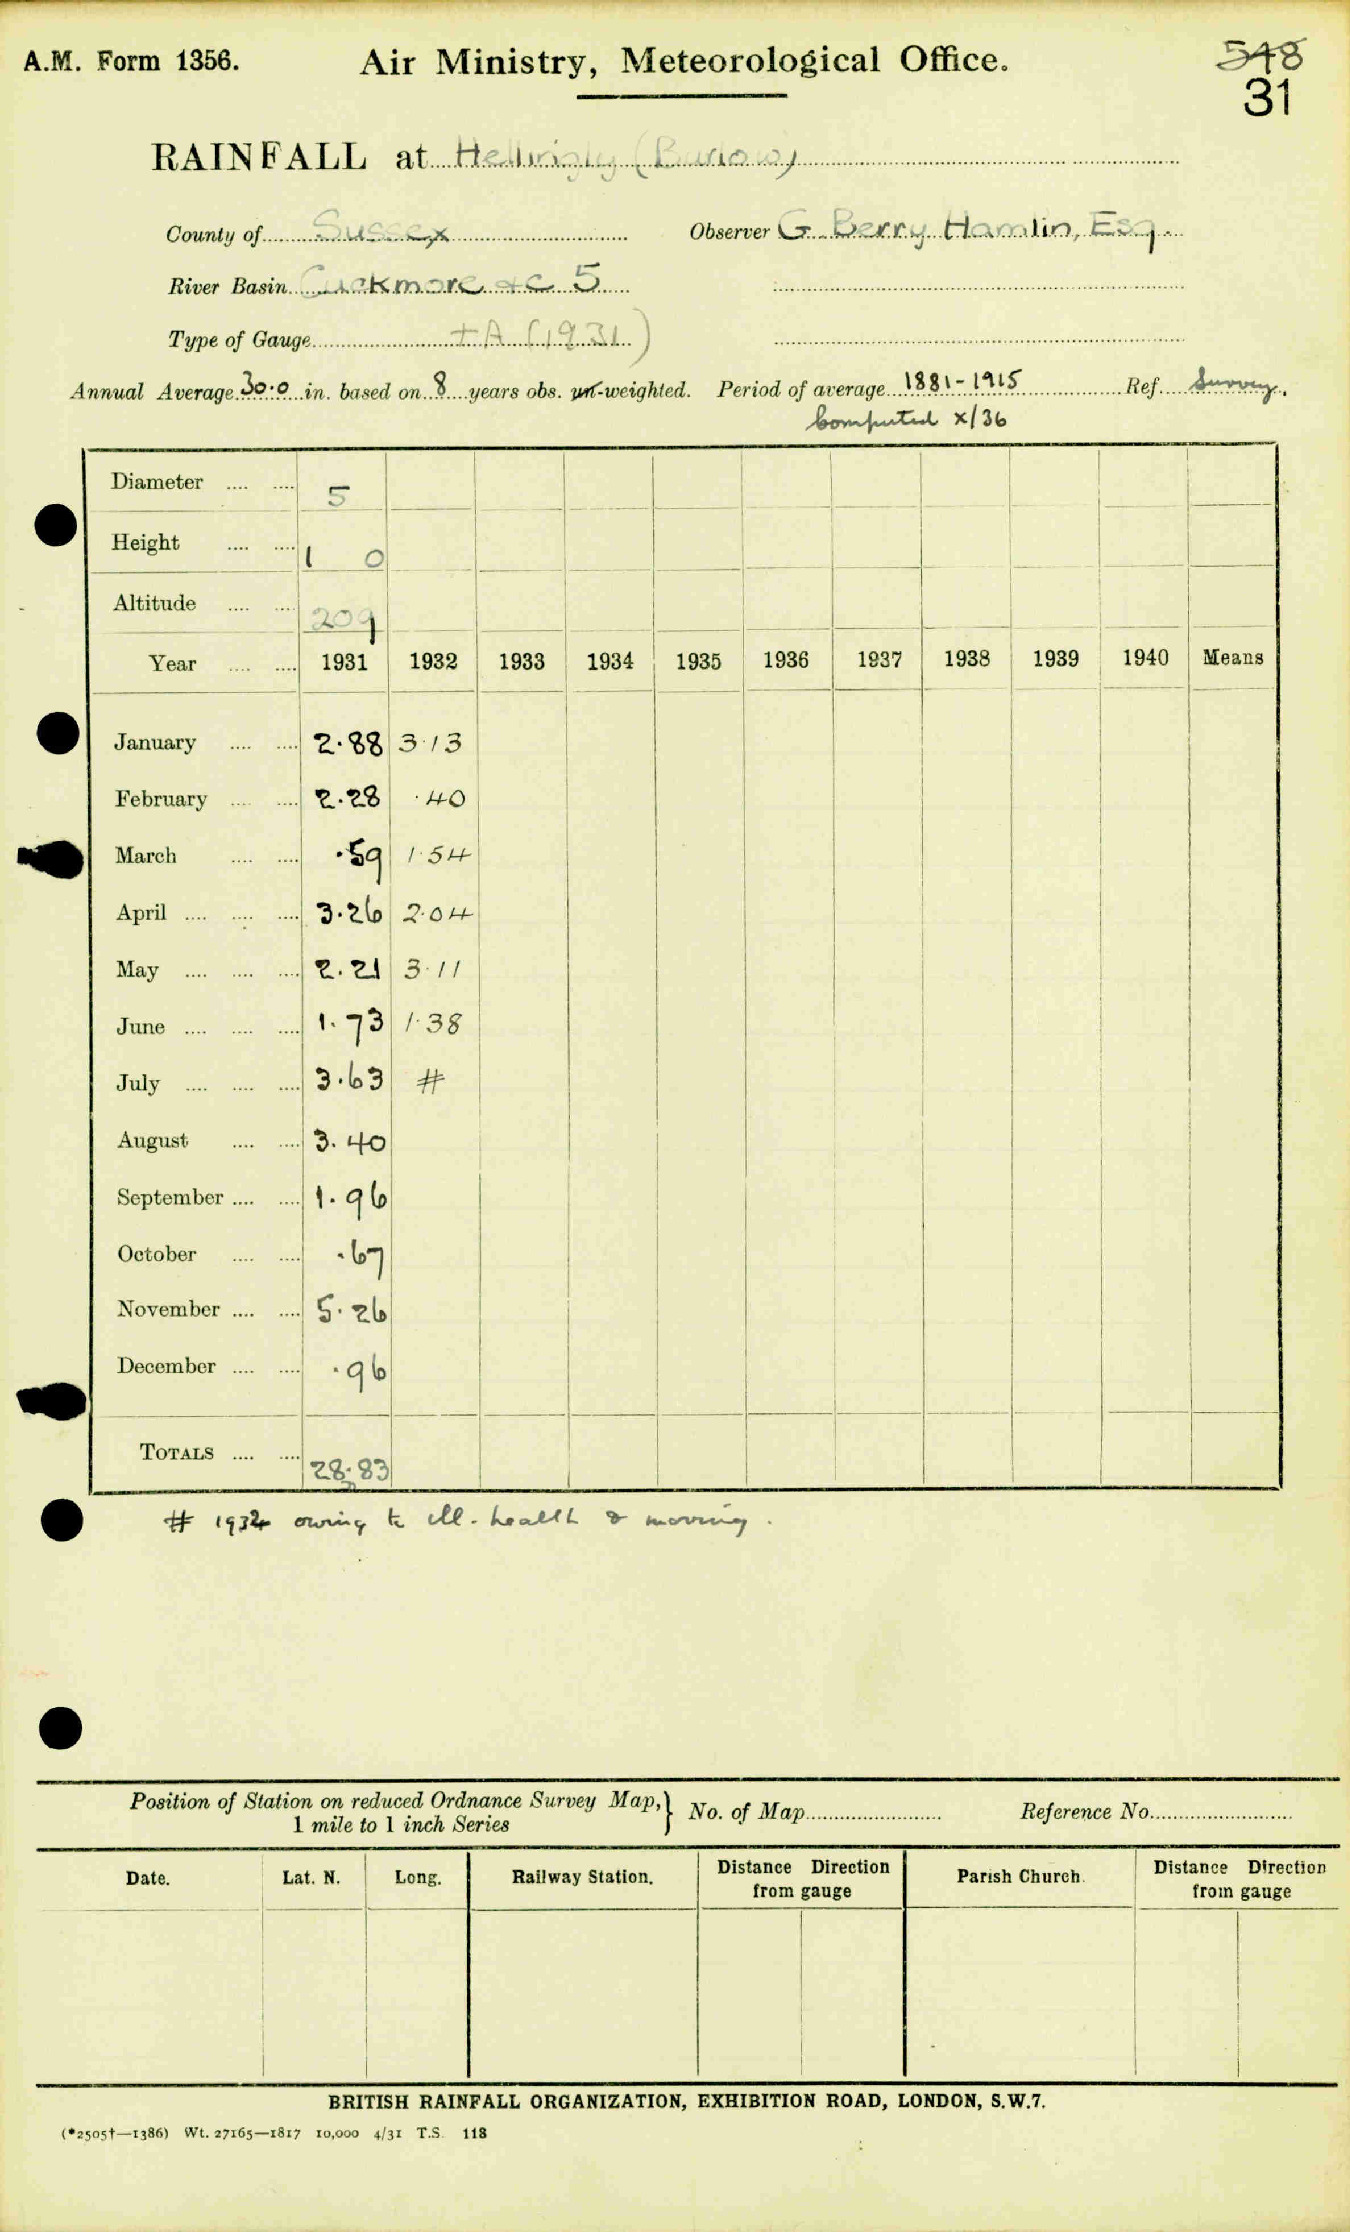 A.M. Form 1356.
Air Ministry, Meteorological Office.
548
31
RAINFALL at Hellingly (Burlow)
County of Sussex
Observer G. Berry Hamlin, Esq.
River Basin Cuckmore &c 5
Type of Gauge +A (1931)
Annual Average 30.0 in. based on 8 years obs. un-weighted. Period of average 1881-1915 Ref. Survey.
Computed x/36
Diameter .... .... 5
Height .... .... 1 0
Altitude .... .... 209
Year .... .... 1931 1932 1933 1934 1935 1936 1937 1938 1939 1940 Means
January .... .... 2.88 3.13
February .... .... 2.28 .40
March .... .... .59 1.54
April .... .... .... 3.26 2.04
May .... .... .... 2.21 3.11
June .... .... .... 1.73 1.38
July .... .... .... 3.63 #
August .... .... 3.40
September .... .... 1.96
October .... .... .67
November .... .... 5.26
December .... .... .96
TOTALS .... .... 28.83
# 1932 owing to ill-health & moving.
Position of Station on reduced Ordnance Survey Map,} No. of Map Reference No.
1 mile to 1 inch Series
Date. Lat. N. Long. Railway Station. Distance Direction from gauge Parish Church. Distance Direction from gauge
BRITISH RAINFALL ORGANIZATION, EXHIBITION ROAD, LONDON, S.W.7.
(*2505†—1386) Wt. 27165—1817 10,000 4/31 T.S. 118